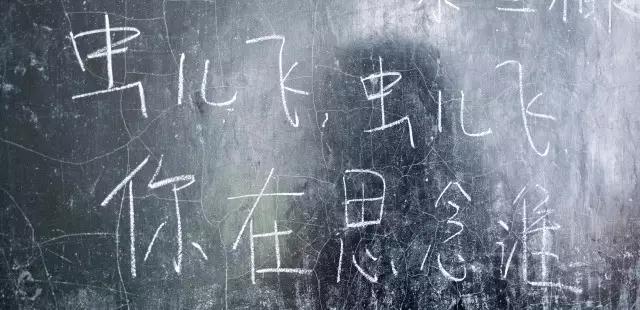 虫儿飞,虫儿飞
你在思念谁